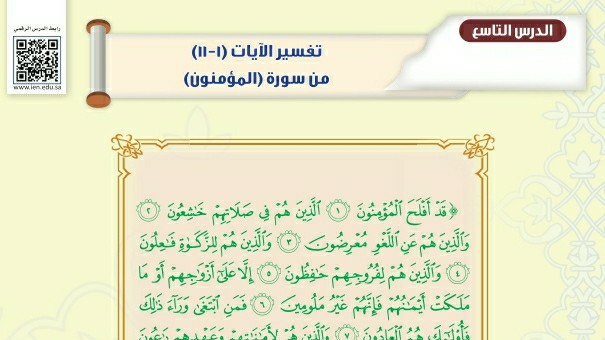 الدرس التاسع
رابط الدرس الرقمي
www.ien.edu.sa
تفسير الآيات (١-١١)
من سورة (المؤمنون)
﴿ قَدْ أَفْلَحَ الْمُؤْمِنُونَ ١ الَّذِينَ هُمْ فِي صَلَاتِهِمْ خَٰشِعُونَ ٢
وَالَّذِينَ هُمْ عَنِ اللَّغْوِ مُعْرِضُونَ ٣ وَالَّذِينَ هُمْ لِلزَّكَوٰةِ فَٰعِلُونَ
٤ وَالَّذِينَ هُمْ لِفُرُوجِهِمْ حَٰفِظُونَ ٥ إِلَّا عَلَىٰٓ أَزْوَٰجِهِمْ أَوْ مَا
مَلَكَتْ أَيْمَٰنُهُمْ فَإِنَّهُمْ غَيْرُ مَلُومِينَ ٦ فَمَنِ ابْتَغَىٰ وَرَآءَ ذَٰلِكَ
فَأُو۟لَٰٓئِكَ هُمُ الْعَادُونَ ٧ وَالَّذِينَ هُمْ لِأَمَٰنَٰتِهِمْ وَعَهْدِهِمْ رَٰعُونَ